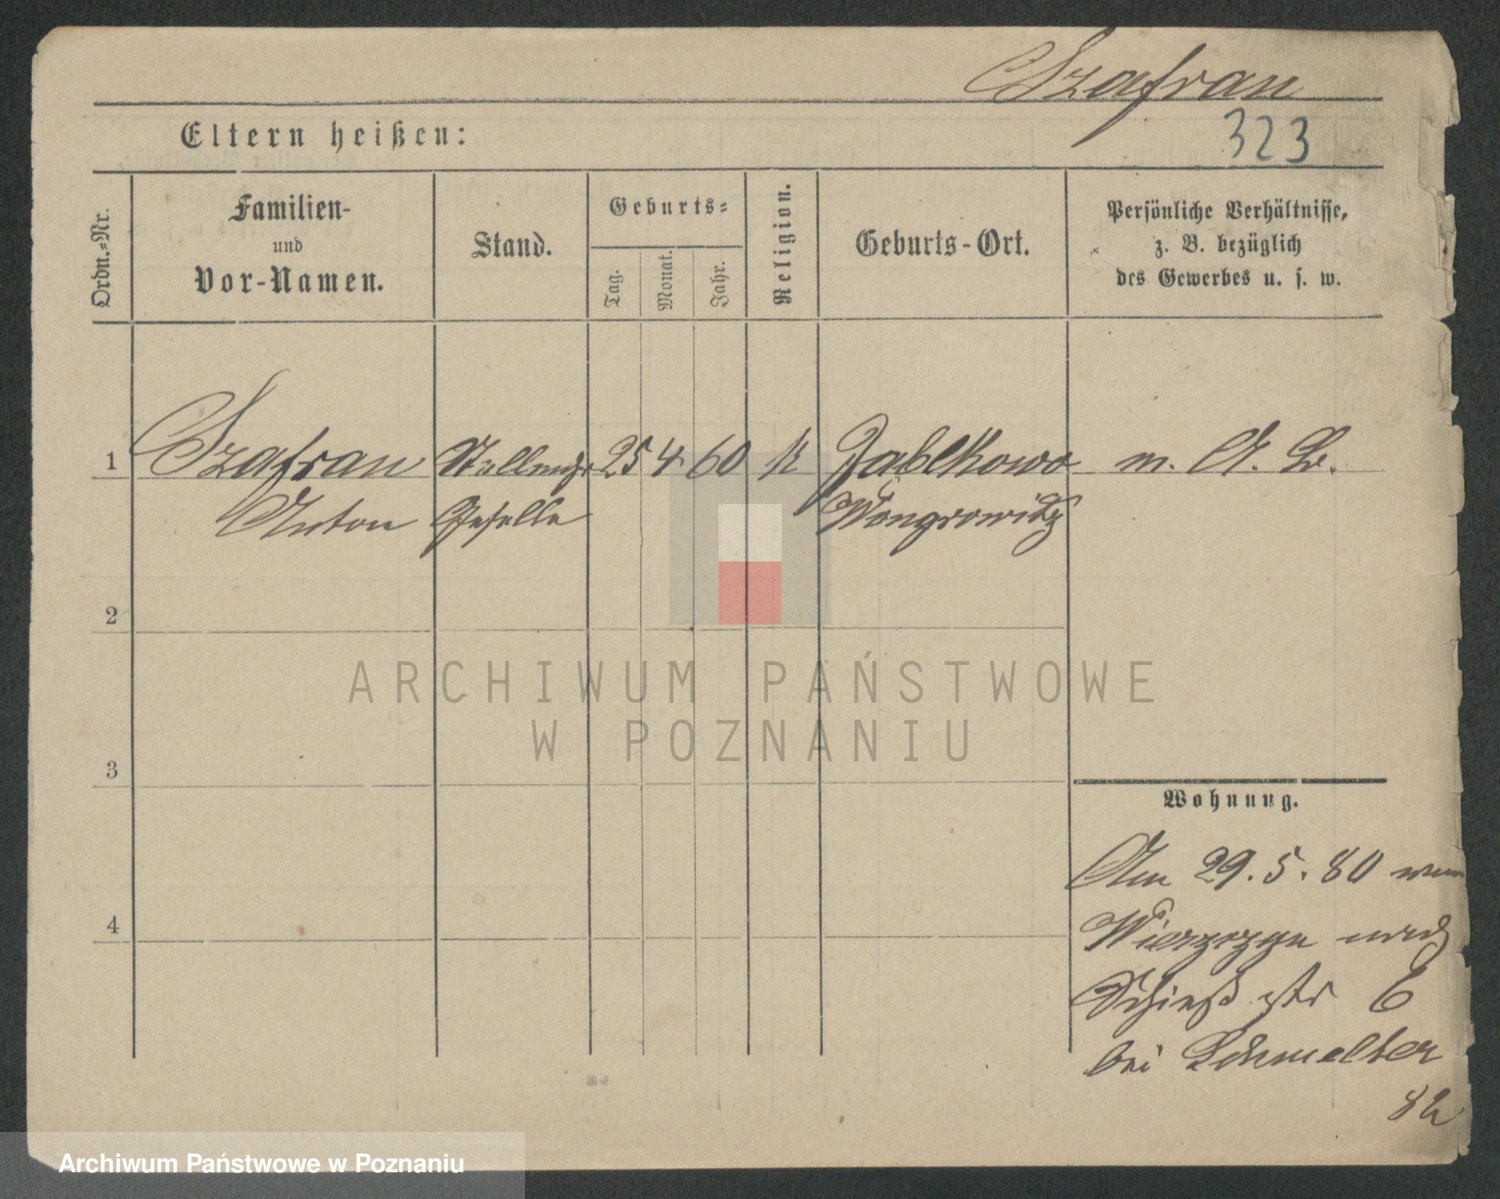 Szafran
323
Eltern heißen:
Ordn.-Nr.
Familien-
und
Vor-Namen.
Stand.
Geburts-
Tag.
Monat.
Jahr.
Religion.
Geburts-Ort.
Persönliche Verhältnisse,
z. B. bezüglich
des Gewerbes u. s. w.
1
Szafran 25 4 60 k Jablkowo m. A. B.
Anton Geselle Wongrowitz
2
3
4
ARCHIWUM PAŃSTWOWE
W POZNANIU
Wohnung.
Am 29. 5. 80
nach
Schießstr 6
bei
Archiwum Państwowe w Poznaniu